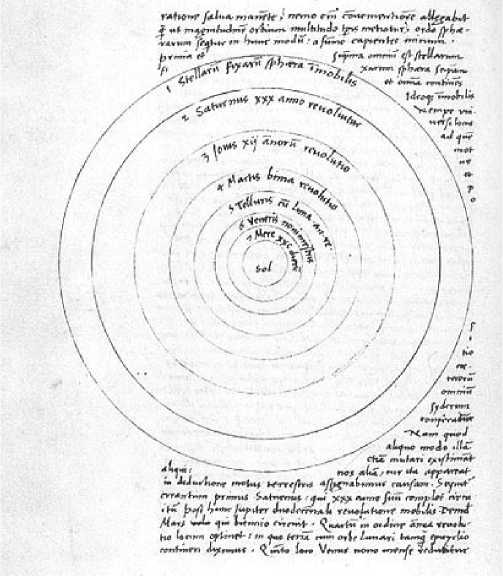 ratione salua manēte, nemo em̄ conuenientiorē allegabit
q̄ ut magnitudinē orbium multitudo tp̄is metiatur, ordo sphæ-
rarum sequitur in hunc modū: a sūmo capientes initium.
prima et suprema omniū est stellarum
fixarum sphæra seipsam
et omnia continēs
Ideoqȝ īmobilis
Nempe uni-
uersi locus
ad quē
mot
us
et
p
o
1 Stellarū fixarū sphæra īmobilis
2 Saturnus xxx anno reuoluitur
3 Iouis xij annorū reuolutio
4 Martis bima reuolutio
5 Telluris cū Luna an. re.
6 Veneris nonimestris
7 Merc xxc dierū
Sol
s
i
tio
cæ-
terorū
omniū
syderum
conferatur
Nam quod
aliquo modo illā
etiā mutari existimāt
aliqui: nos aliā, cur ita appareat
in deductione motus terrestris assignabimus causam. Sequitur
errantium primus Saturnus: qui xxx anno suū complet circu-
itū post hunc Iupiter duodecennali reuolutione mobilis Deinde
Mars qui biennio circuit. Quartū in ordine annua reuolu-
tio locum optinet: in quo terrā cum orbe Lunari tanqȝ epicyclio
contineri diximus. Quinto loco Venus nono mense reducitur